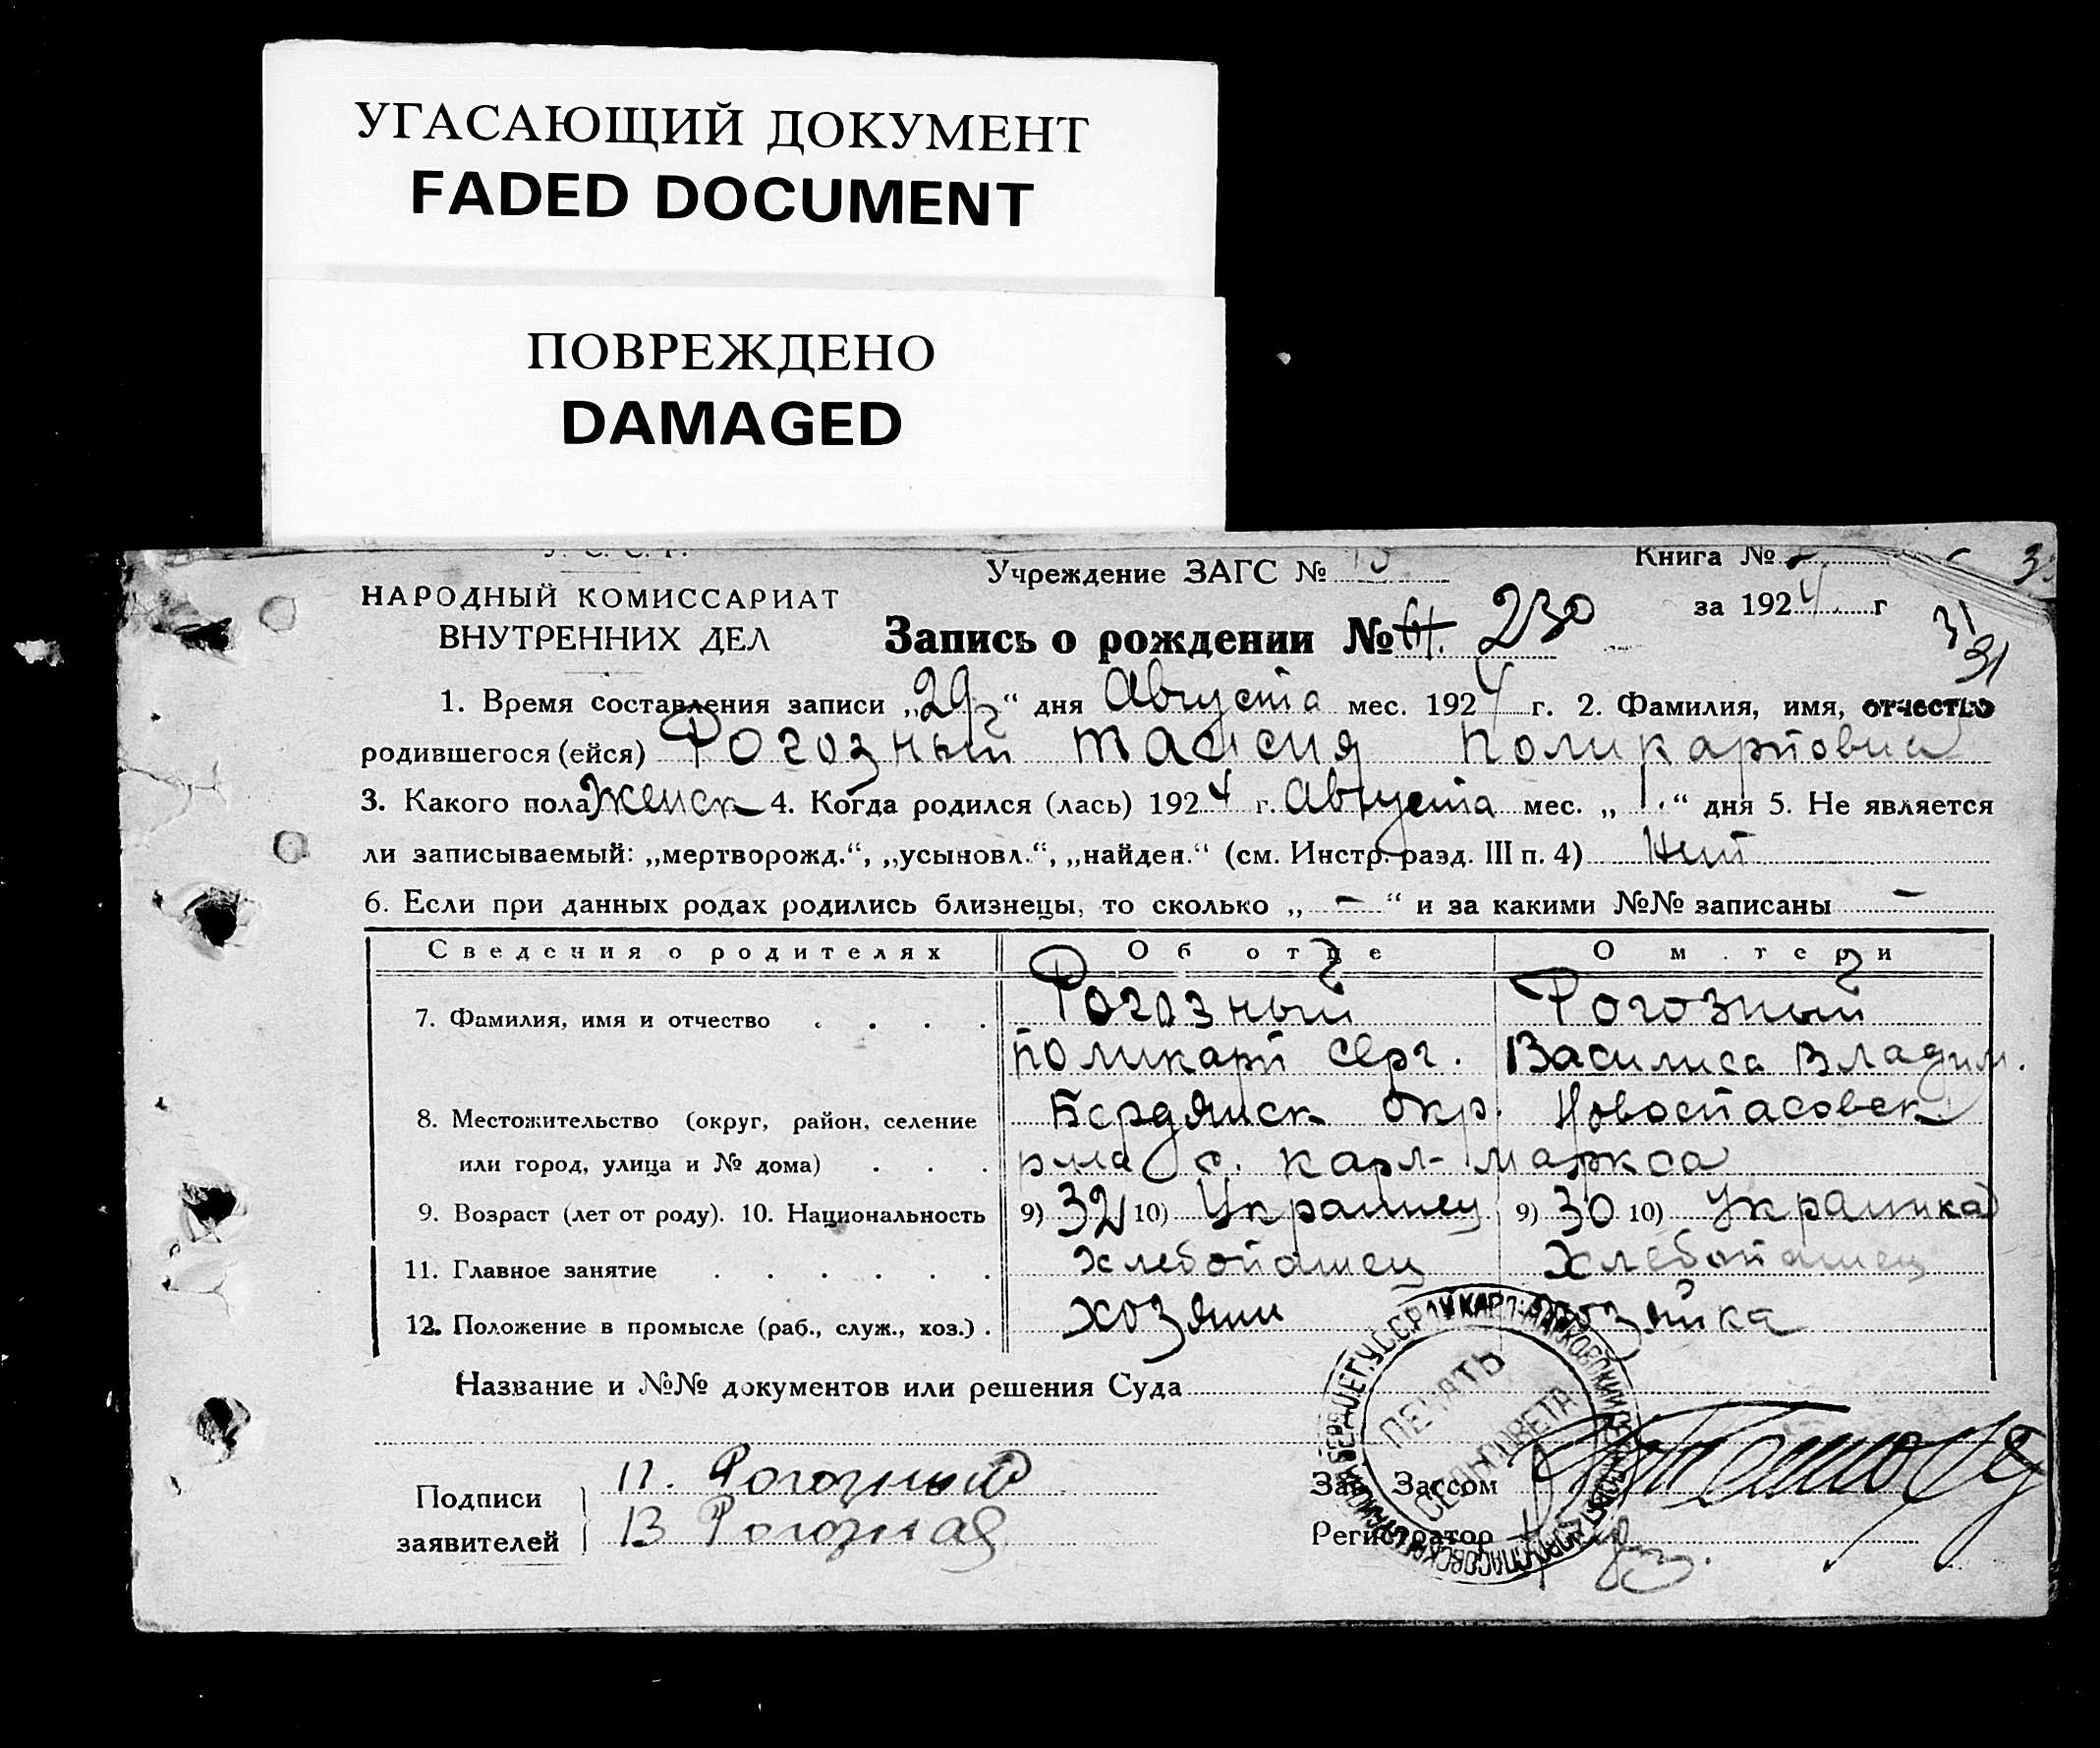 УГАСАЮЩИЙ ДОКУМЕНТ
FADED DOCUMENT
ПОВРЕЖДЕНО
DAMAGED
У. С. С. Р.
НАРОДНЫЙ КОМИССАРИАТ
ВНУТРЕННИХ ДЕЛ
Учреждение ЗАГС №
Книга № -
за 1924 г
31
31
Запись о рождении № 230
1. Время составления записи „29“ дня Августа мес. 1924 г. 2. Фамилия, имя, отчество
родившегося (ейся) Рогозный Таисия Поликарповна
3. Какого пола Женск 4. Когда родился (лась) 1924 г. Августа мес. „1.“ дня 5. Не является
ли записываемый: „мертворожд.“, „усыновл.“, „найден.“ (см. Инстр. разд. III п. 4) Нет
6. Если при данных родах родились близнецы, то сколько „ - “ и за какими №№ записаны -
Сведения о родителях Об отце О м.тери
7. Фамилия, имя и отчество . . . . Рогозный Рогозный
Поликарп Серг. Василиса Владим.
8. Местожительство (округ, район, селение Бердянск окр. Новоспасовск.
или город, улица и № дома) . . . рна с. Карл-Маркса
9. Возраст (лет от роду). 10. Национальность 9) 32 10) Украинец 9) 30 10) Украинка
11. Главное занятие . . . . . . Хлебопашец Хлебопашец
12. Положение в промысле (раб., служ., хоз.) . Хозяин Хозяйка
Название и №№ документов или решения Суда
Подписи заявителей
П. Рогозный
В Рогозная
Зав. Загсом
Регистратор
ПЕЧАТЬ
СЕЛЬСОВЕТА